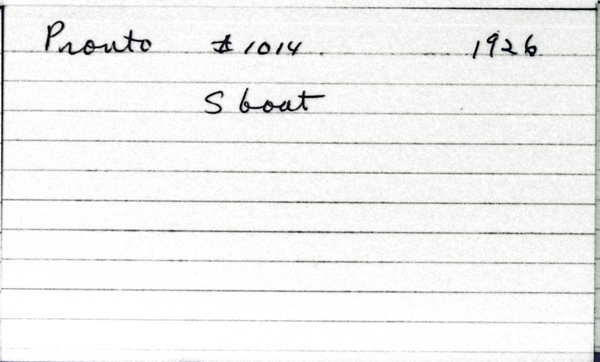 Pronto #1014 1926
S boat